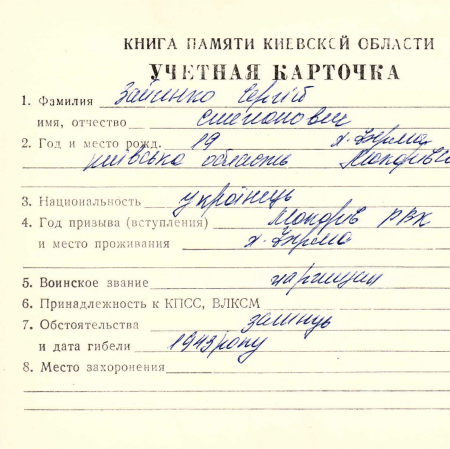 КНИГА ПАМЯТИ КИЕВСКОЙ ОБЛАСТИ
УЧЕТНАЯ КАРТОЧКА
1. Фамилия Заїченко Сергій
имя, отчество Степанович
2. Год и место рожд. 19 х. Бирма
Київська область Макарівсь
3. Национальность українець
4. Год призыва (вступления) Макарів РВК
и место проживания х. Бирма
5. Воинское звание
6. Принадлежность к КПСС, ВЛКСМ
7. Обстоятельства загинув
и дата гибели 1943 року
8. Место захоронения